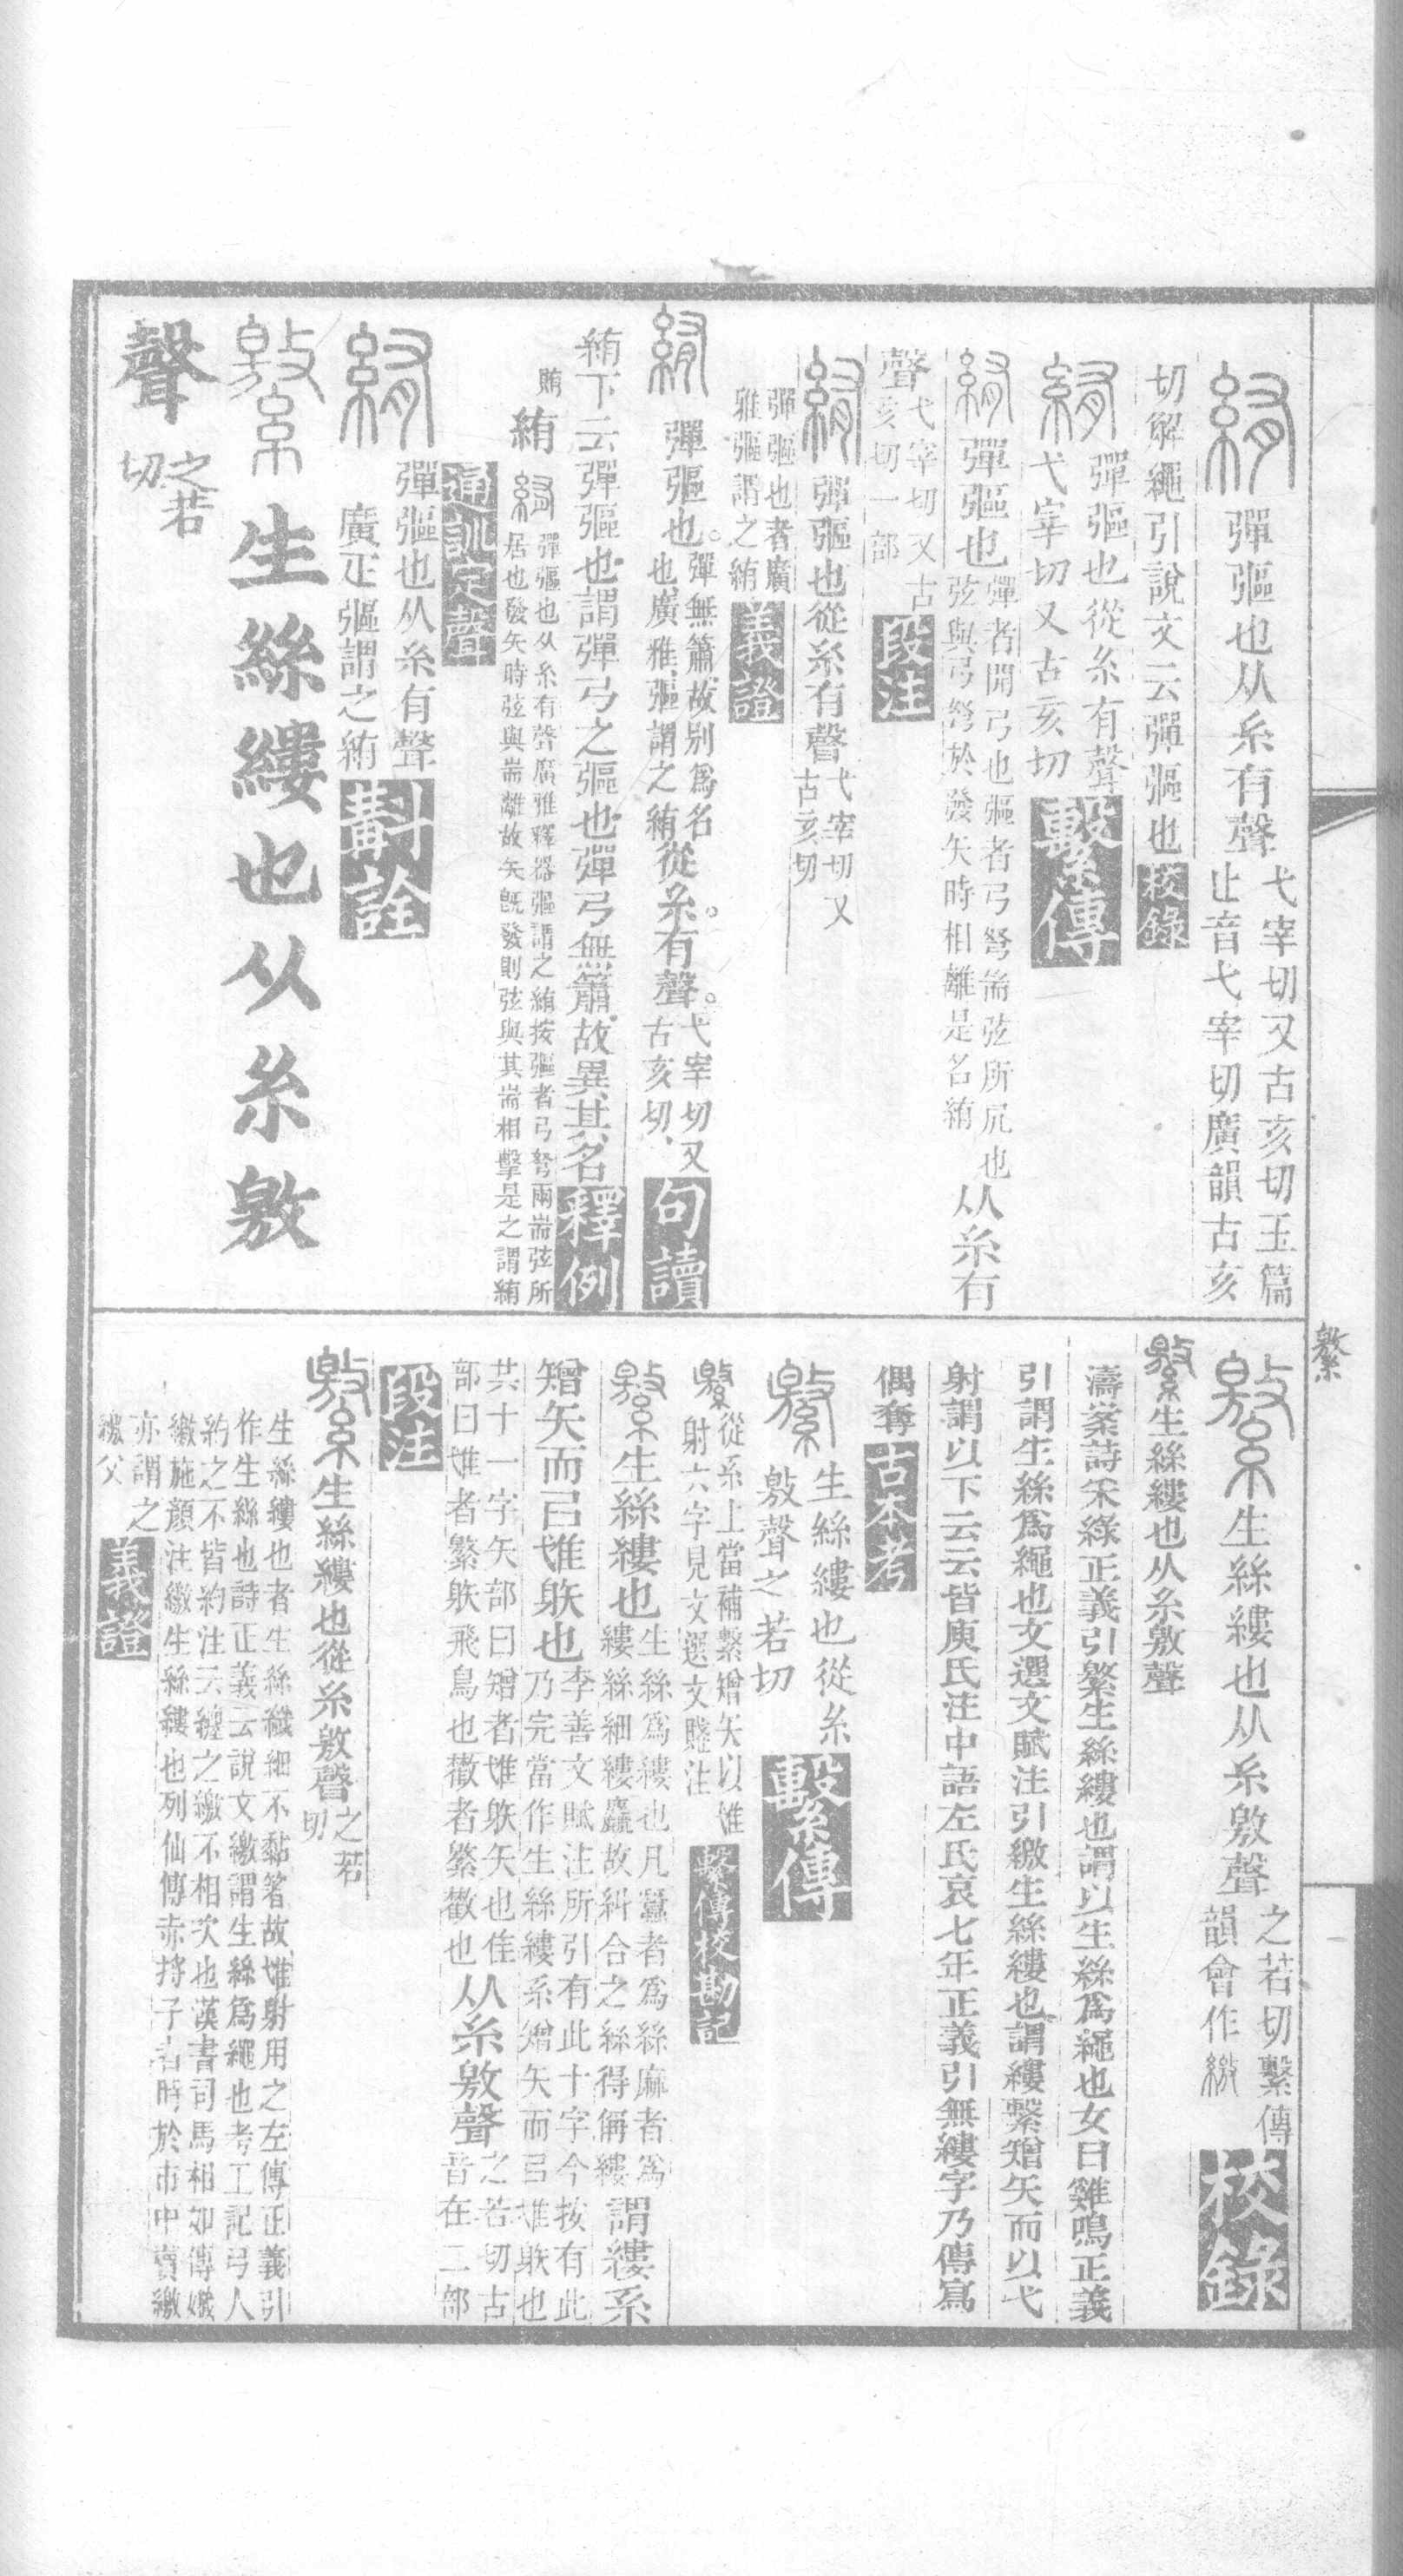 綪彈彄也从糸有聲弋宰切又古亥切玉篇
止音弋宰切廣韻古亥
切解繩引說文云彈彄也校錄
彈彄也從糸有聲
弋宰切又古亥切繫傳
彈彄也彈者開弓也彄者弓弩耑弦所凥也
弦與弓弩於發矢時相離是名絠从糸有
聲弋宰切又古
亥切一部段注
彈彄也從糸有聲弋宰切又
古亥切
彈彄也者廣
雅彄謂之絠義證
彈彄也。彈無簫故別爲名
也廣雅彄謂之絠從糸。有聲。弋宰切又
古亥切句讀
絠下云彈彄也謂彈弓之彄也彈弓無簫故異其名釋例
賄
絠
彈彄也从糸有聲廣雅釋器彄謂之絠按彄者弓弩兩耑弦所
居也發矢時弦與耑離故矢旣發則弦與其耑相擊是之謂絠
通訓定聲
彈彄也从糸有聲
廣疋彄謂之絠斠詮
生絲縷也从糸敫
聲之若
切
繁
生絲縷也从糸敫聲之若切繫傳
韻會作繳校錄
生絲縷也从糸敫聲
濤案詩采綠正義引繁生絲縷也謂以生絲爲繩也女曰雞鳴正義
引謂生絲爲繩也文選文賦注引繳生絲縷也謂縷繫矰矢而以弋
射謂以下云云皆庾氏注中語左氏哀七年正義引無縷字乃傳寫
偶奪古本考
生絲縷也從糸
敫聲之若切繫傳
從系上當補繫矰矢以隿
射六字見文選文賦注繫傳校勘記
生絲縷也生絲爲縷也凡蠶者爲絲麻者爲
縷絲細縷麤故糾合之絲得偁縷謂縷系
矰矢而㠯隿䠶也李善文賦注所引有此十字今按有此
乃完當作生絲縷系矰矢而㠯隿䠶也
共十一字矢部曰矰者隿䠶矢也隹
部曰隿者繁䠶飛鳥也㰚者繁㰚也从糸敫聲之若切古
音在二部
段注
生絲縷也從糸敫聲之若
切
生絲縷也者生絲纖細不黏箸故隿射用之左傳正義引
作生絲也詩正義云說文繳謂生絲爲繩也考工記弓人
約之不皆約注云纏之繳不相次也漢書司馬相如傳孅
繳施顏注繳生絲縷也列仙傳赤將子者時於市中賣繳
亦謂之
繳父義證